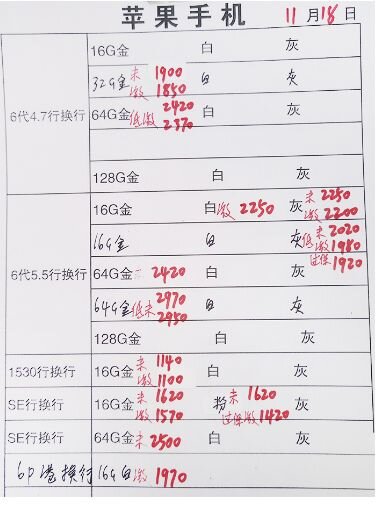 苹果手机 11月18日
16G金 白 灰
32G金 未 1900 白 灰
激 1850
6代4.7行换行 64G金 未 2420 白 灰
低激 2370
128G金 白 灰
16G金 白 激 2250 灰 未 2250
激 2200
16G金 白 灰 未 2020
低激 1980
过保 1920
6代5.5行换行 64G金 2420 白 灰
64G金 未 2970 白 灰
低 2950
128G金 白 灰
1530行换行 16G金 未 1140 白 灰
激 1100
SE行换行 16G金 未 1620 粉 未 1620 灰
激 1570 过保激 1420
SE行换行 64G金 未 2500 白 灰
6P港换行 16G白 激 1970